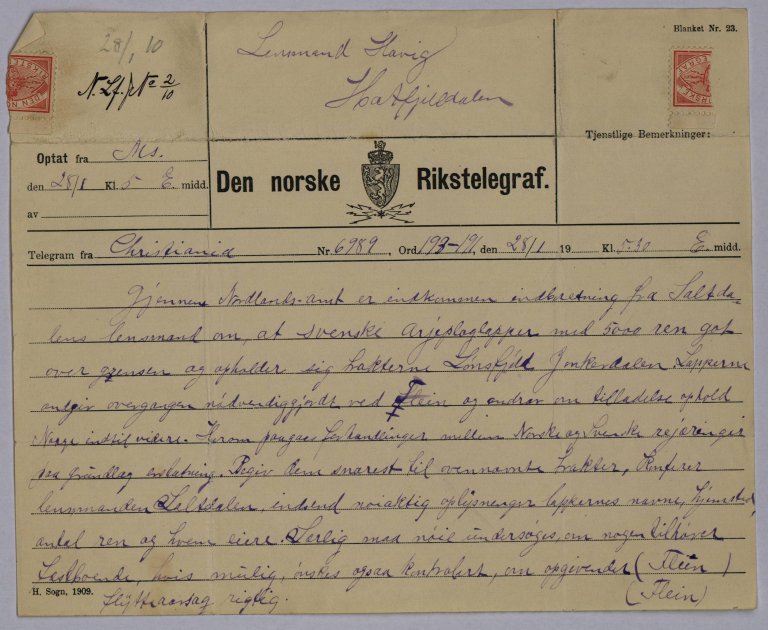 Blanket Nr. 23.
28/1, 10
N. Lf. No 2/10
Lensmand Havig
Hatfjelddalen
Tjenstlige Bemerkninger:
Optat fra Ms.
den 28/1 Kl. 5 E. midd.
av
Den norske Rikstelegraf.
Telegram fra Christiania Nr. 6989, Ord 193-191, den 28/1 19 Kl. 5.30 E. midd.
Gjennem Nordlands amt er indkommen indberetning fra Saltda-
lens lensmand om, at svenske Arjeploglapper med 5000 ren gåt
over grensen og opholder sig trakterne Lønsfjeld Junkerdalen Lapperne
angiv overgangen nødvendiggjordt ved Flein og andrar om tilladelse ophold
Norge indtil videre. Herom paagaar forhandlinger mellem Norske og Svenske rejæringer
paa grundlag erstatning. Begiv dem snarest til ovennævnte trakter, Konferer
lensmanden Saltdalen, indsend nøiaktig oplysninger lappernes navne, hjemsted,
antal ren og hvem eiere. Særlig maa nøie undersøges, om nogen tilhører
fastboende, hvis mulig, ønskes ogsaa kontrolert, om opgivender (Flein)
flytteaarsag rigtig. (Flein)
H. Sogn, 1909.